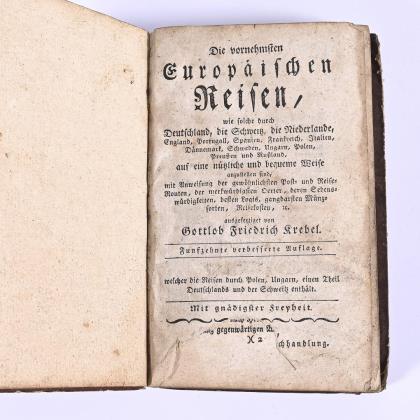 Die vornehmsten
Europäischen
Reisen,
wie solche durch
Deutschland, die Schweitz, die Niederlande,
England, Portugall, Spanien, Frankreich, Italien,
Dännemark, Schweden, Ungarn, Polen,
Preußen und Rußland,
auf eine nützliche und bequeme Weise
anzustellen sind,
mit Anweisung der gewöhnlichsten Post- und Reise-
Routen, der merkwürdigsten Oerter, deren Sehens-
würdigkeiten, besten Logis, gangbarsten Münz-
sorten, Reisekosten, ꝛc.
ausgefertiget von
Gottlob Friedrich Krebel.
Funfzehnte verbesserte Auflage.
welcher die Reisen durch Polen, Ungarn, einen Theil
Deutschlands und der Schweitz enthält.
Mit gnädigster Freyheit.
gegenwärtigen
X 2
chhandlung.